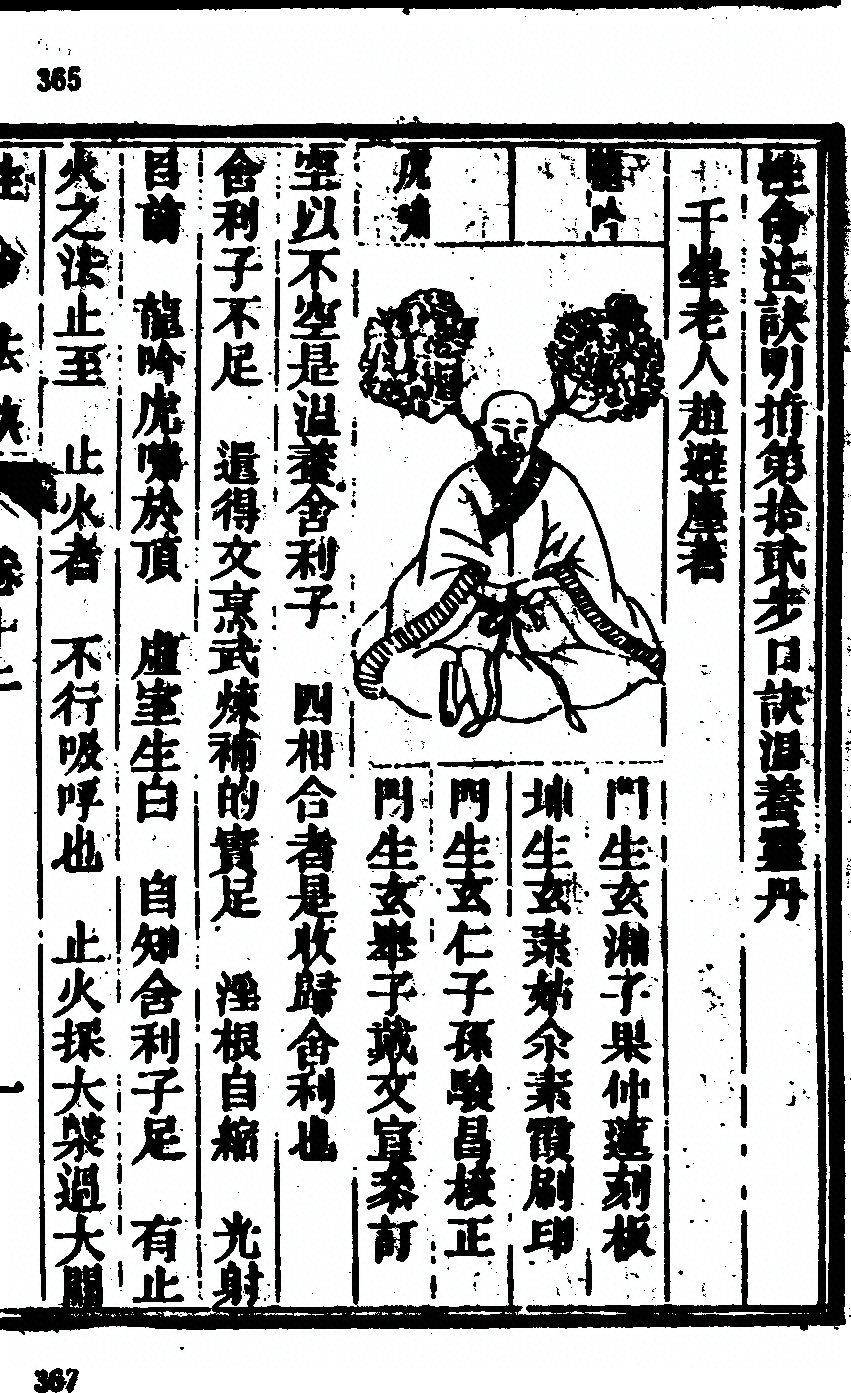 365
性命法訣明指第拾貳步口訣溫養靈丹
千峯老人趙避塵著
龍吟
虎嘯
門生玄湘子果仲蓮刻板
坤生玄素姑余素霞刷印
門生玄仁子孫駿昌校正
門生玄舉子戴文宣叅訂
空以不空是溫養舍利子 四相合者是收歸舍利也
舍利子不足 還得文烹武煉補的實足 淫根自縮 光射
目前 龍吟虎嘯於頂 虛室生白 自知舍利子足 有止
火之法止至 止火者 不行吸呼也 止火採大藥過大關
性命法訣 卷十二 一
367